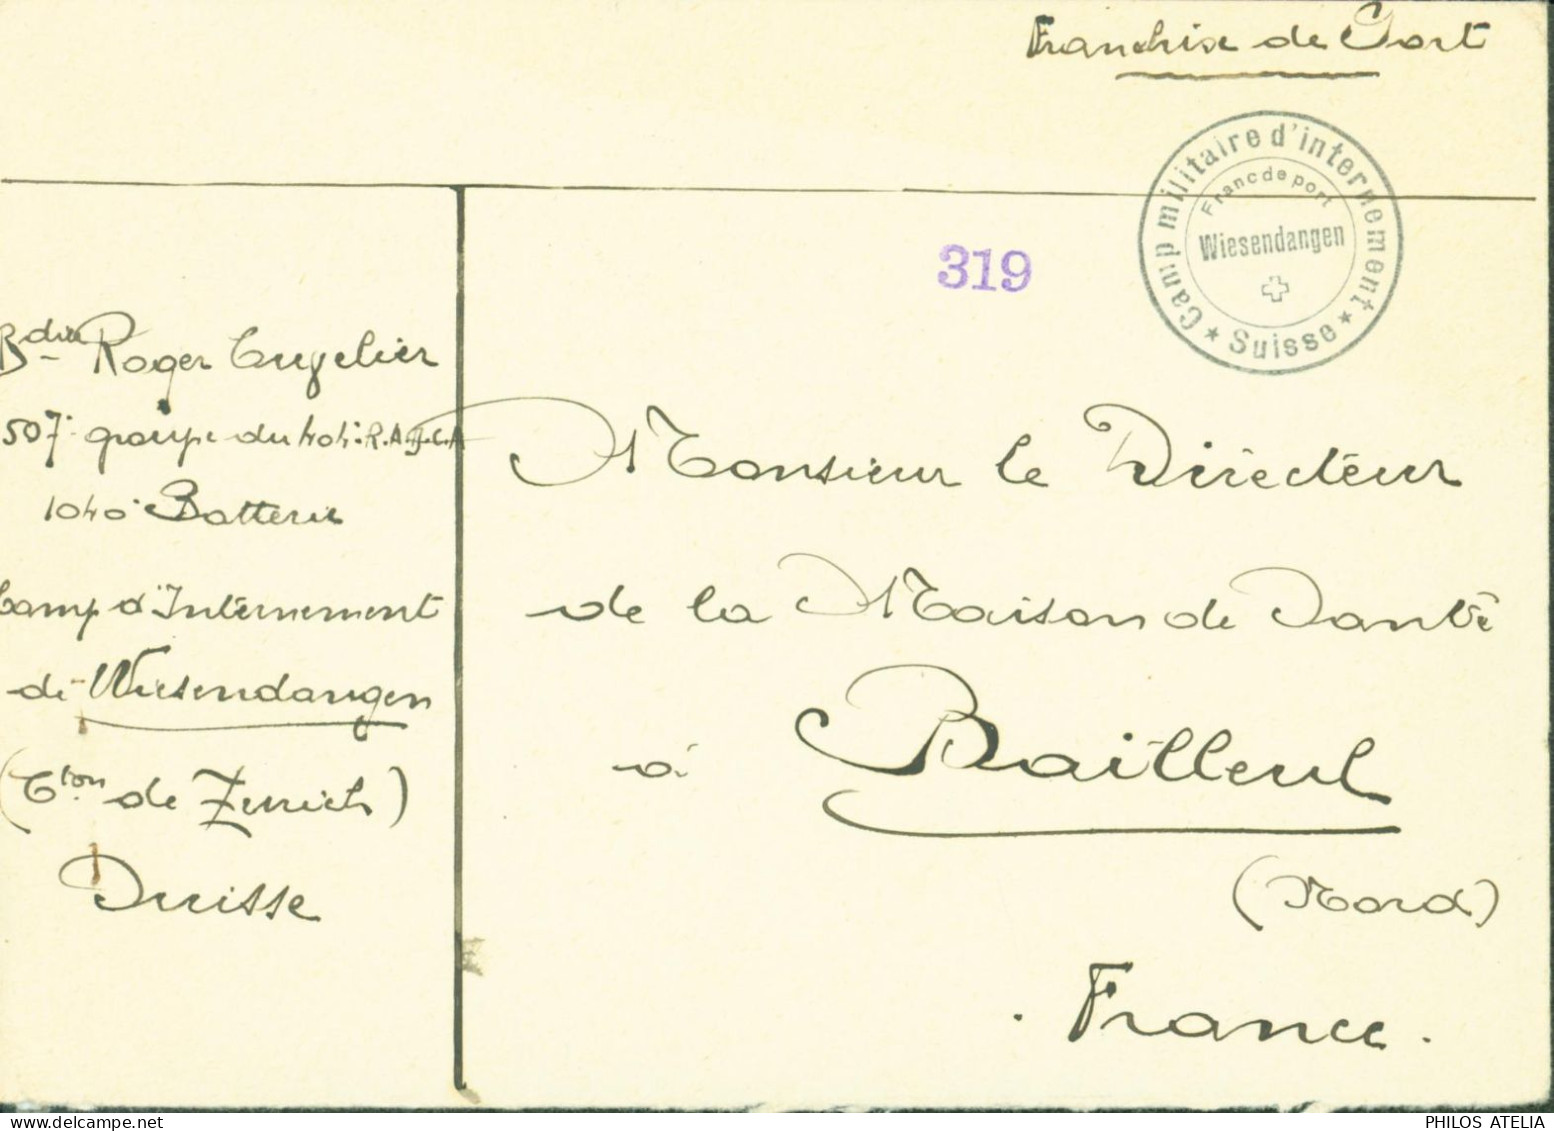 Franchise de Port
Camp militaire d'internement
Franc de port
Wiesendangen
★ Suisse ★
319
Bdier Roger Cuvelier
507e groupe du 404e R.A.F.C.A
1040e Batterie
Camp d'Internement
de Wiesendangen
(Cton de Zurich)
Suisse
Monsieur le Directeur
de la Maison de Santé
à Bailleul
(Nord)
. France .
PHILOS ATELIA